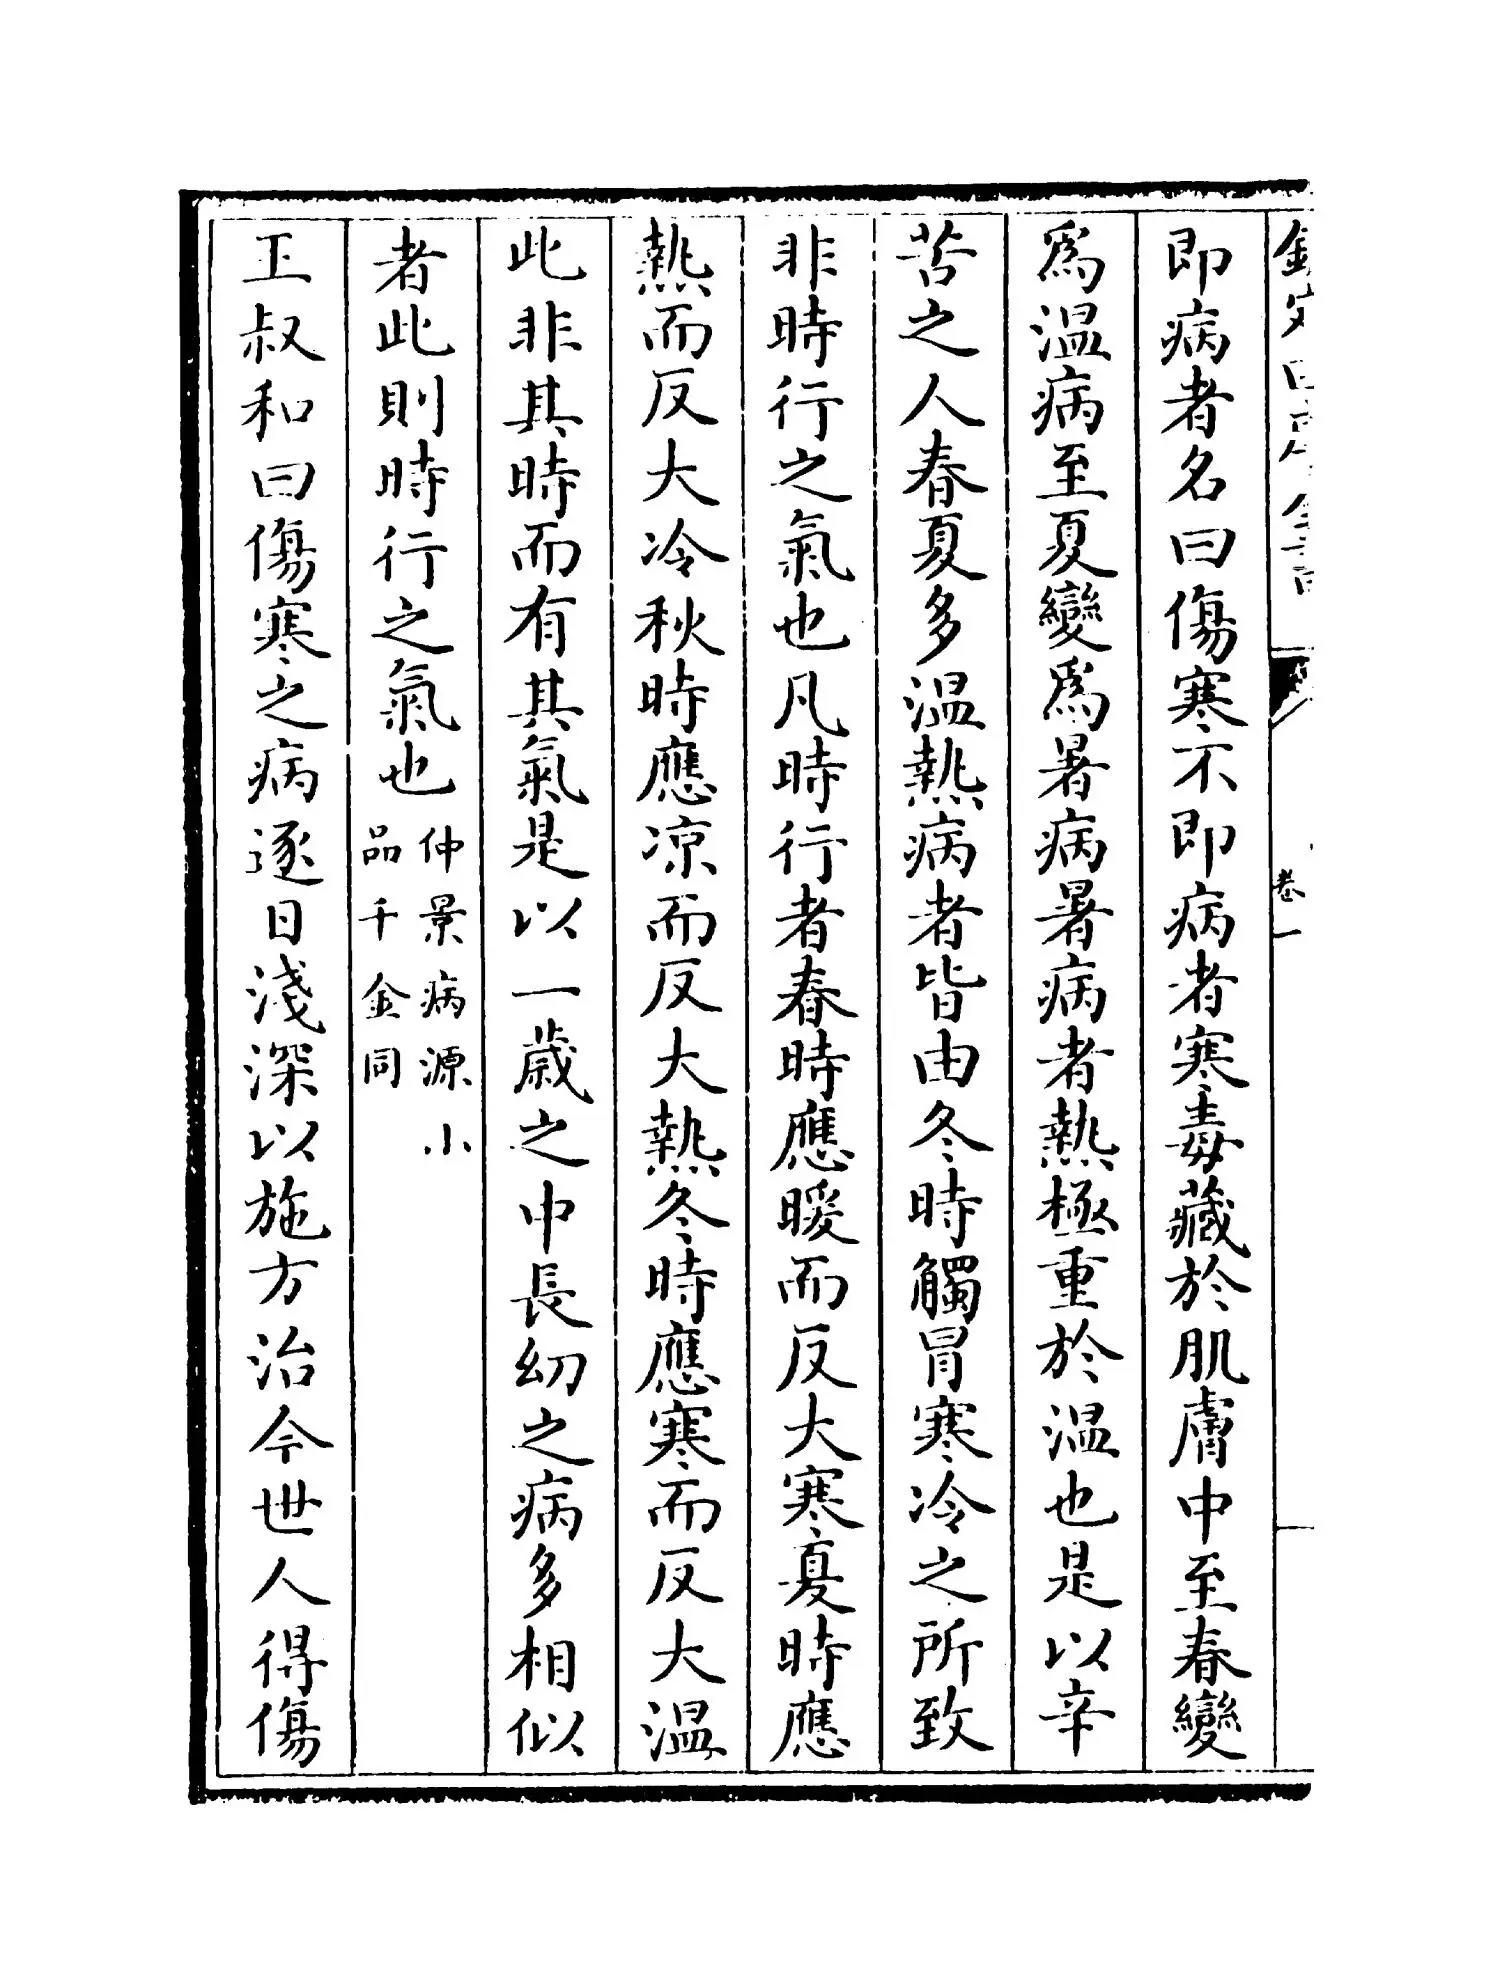 卷一
即病者名曰傷寒不即病者寒毒藏於肌膚中至春變
爲温病至夏變爲暑病暑病者熱極重於温也是以辛
苦之人春夏多温熱病者皆由冬時觸冒寒冷之所致
非時行之氣也凡時行者春時應暖而反大寒夏時應
熱而反大冷秋時應凉而反大熱冬時應寒而反大温
此非其時而有其氣是以一歲之中長幼之病多相似
者此則時行之氣也
仲景病源小
品千金同
王叔和曰傷寒之病逐日淺深以施方治今世人得傷